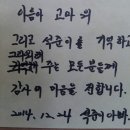 아음아 고마워
그리고 석준이를 기억하고
그리워해
주는 모든분들께
감사의 마음을 전합니다.
2014. 12. 24 석준이 아빠